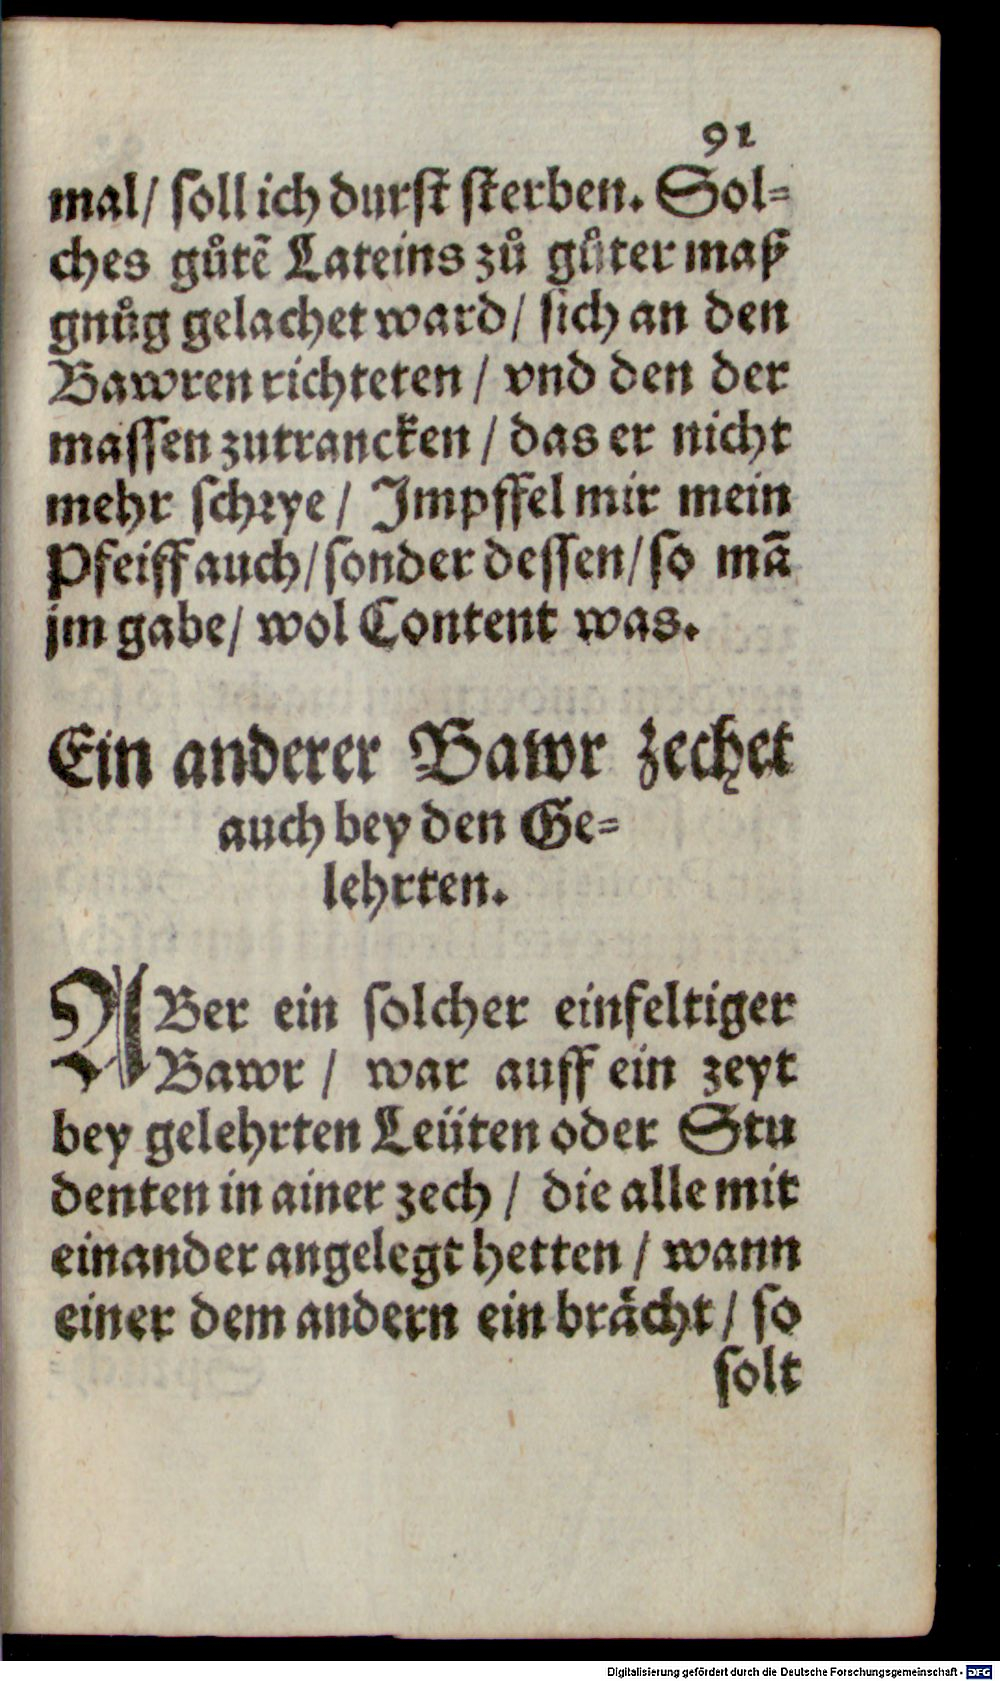 91
mal/ soll ich durst sterben. Sol-
ches gůtẽ Lateins zů gůter maß
gnůg gelachet ward/ sich an den
Bawren richteten/ vnd den der
massen zutrancken/ das er nicht
mehr schrye/ Jmpffel mir mein
Pfeiff auch/ sonder dessen/ so mã
jm gabe/ wol Content was.
Ein anderer Bawr zechet
auch bey den Ge-
lehrten.
ABer ein solcher einfeltiger
Bawr/ war auff ein zeyt
bey gelehrten Leüten oder Stu
denten in ainer zech/ die alle mit
einander angelegt hetten/ wann
einer dem andern ein brächt/ so
solt
Digitalisierung gefördert durch die Deutsche Forschungsgemeinschaft - DFG